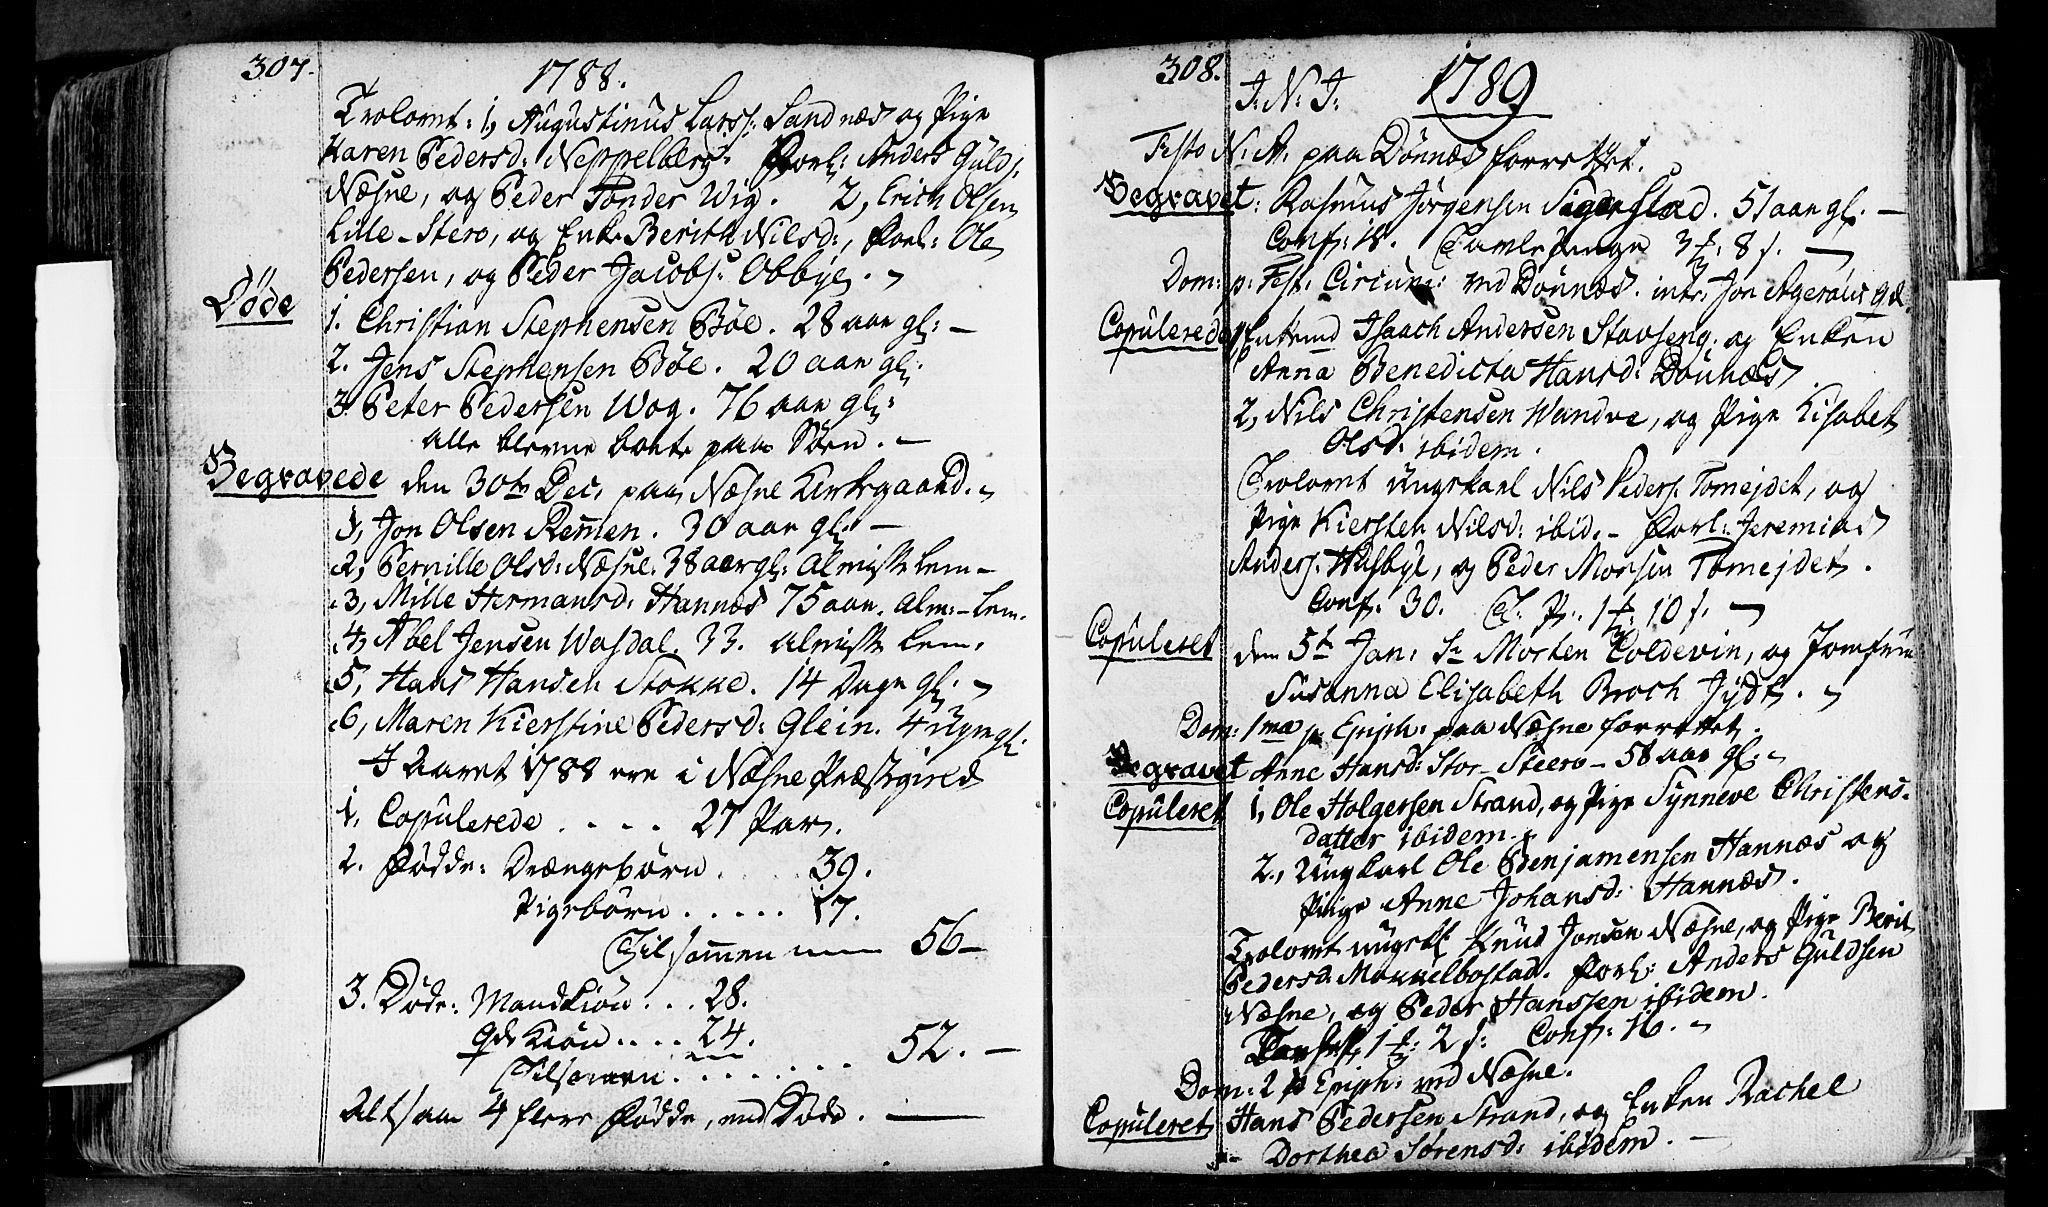 307.
1788.
Trolovet: 1, Augustinus Larss: Sandnæs og Pige
Karen Pedersd: Neppelberg. Forl: Anders Gulds:
Næsne, og Peder Tønder Wig. 2, Erich Olsen
Lille-Stero, og Enke Berith Nilsd:, Forl: Ole
Pedersen, og Peder Jacobs: Obbye.
Døde
1. Christian Stephensen Bøe. 28 aar gl: —
2. Jens Stephensen Bøe. 20 aar gl:
3. Peter Pedersen Wog. 76 aar gl:
alle bleve borte paa Søen. —
Begravede den 30te Dec: paa Næsne Kirkegaard.
1, Jon Olsen Remen. 30 aar gl: —
2, Pernille Olsd: Næsne. 38 aar gl: Almisse lem —
3, Mille Hermansd: Hannæs 75 aar. Alm:-lem.
4, Abel Jensen Wasdal. 33. Almisse lem:
5, Hans Hansen Stokke. 14 Dage gl:
6, Maren Kierstine Pedersd: Glein. 4 Uger gl:
I Aaret 1788 ere i Næsne Præstegield
1. Copulerede . . . . 27 Par.
2. Fødde: Drængebørn . . . 39.
Pigebørn . . . . . 17.
Tilsammen 56 —
3. Døde: Mandkiøn . . . 28.
Qvdekiøn . . . . 24.
Tilsamen . . . . . . . . 52. —
Altsaa 4 flere Fødde, end Døde. —
308.
J: N: J: 1789
Festo N: A: paa Dønnæs forrettet.
Begravet: Rasmus Jørgensen Sigerstad. 51 aar gl: —
Conf: 18. Tavlepenge 3 8 s. —
Dom: p: Fest: Circumc: ved Dønnæs. intr: Jon Agerøes Qde.
Copulerede 1, Enkemd Isaach Andersen Stavseng. og Enken
Anna Benedicta Hansd: Dønnæs
2, Nils Christensen Wandve, og Pige Lisabet
Olsd: ibidem.
Trolovet Ungkarl Nils Peders: Tomejdet, og
Pige Kiersten Nilsd: ibid. — Forl: Jeremias
Anders: Husbye, og Peder Morsen Tomejdet.
Conf: 30. T. P: 1 10 s. —
Copuleret den 5te Jan: Sr Morten Coldevin, og Jomfrue
Susanna Elisabeth Broch Jydt.
Dom: 1ma p: Epiph: paa Næsne forrettet.
Begravet Anne Hansd: Stor-Steero — 58 aar gl:
Copuleret 1, Ole Holgersen Strand, og Pige Synneve Christens-
datter ibidem.
2., Ungkarl Ole Benjamensen Hannæs og
Pige Anne Johansd: Hannæs.
Trolovet ungkl: Knud Jonsen Næsne, og Pige Berit
Pedersd: Mækkelbostad. Forl: Anders Guldsen
Næsne, og Peder Hanssen ibidem.
1 2 s: Conf: 16.
Dom: 2 p Epiph: ved Næsne.
Copuleret Hans Pedersen Strand, og Enken Rachel
Dorthea Sørensd: ibidem. —